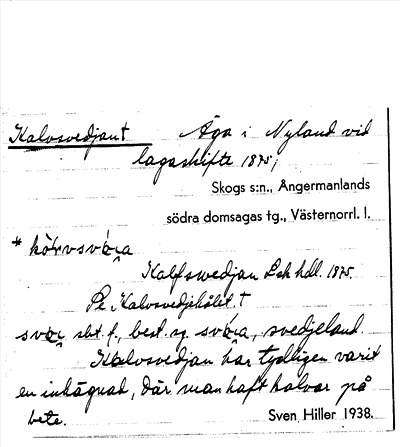 Kalvsvedjant Äga i Nyland vid
lagaskifte 1875;
Skogs s:n., Ångermanlands
södra domsagas tg., Västernorrl. l.
* körvsvöra
Kalfswedjan Lsk hdl. 1875.
Pe Kalvsvedjhålit. †
svör sbt. f., best. sg. svöra, svedjeland
Kalvsvedjan har tydligen varit
en inhägnad, där man haft kalvar på
bete. Sven Hiller 1938.